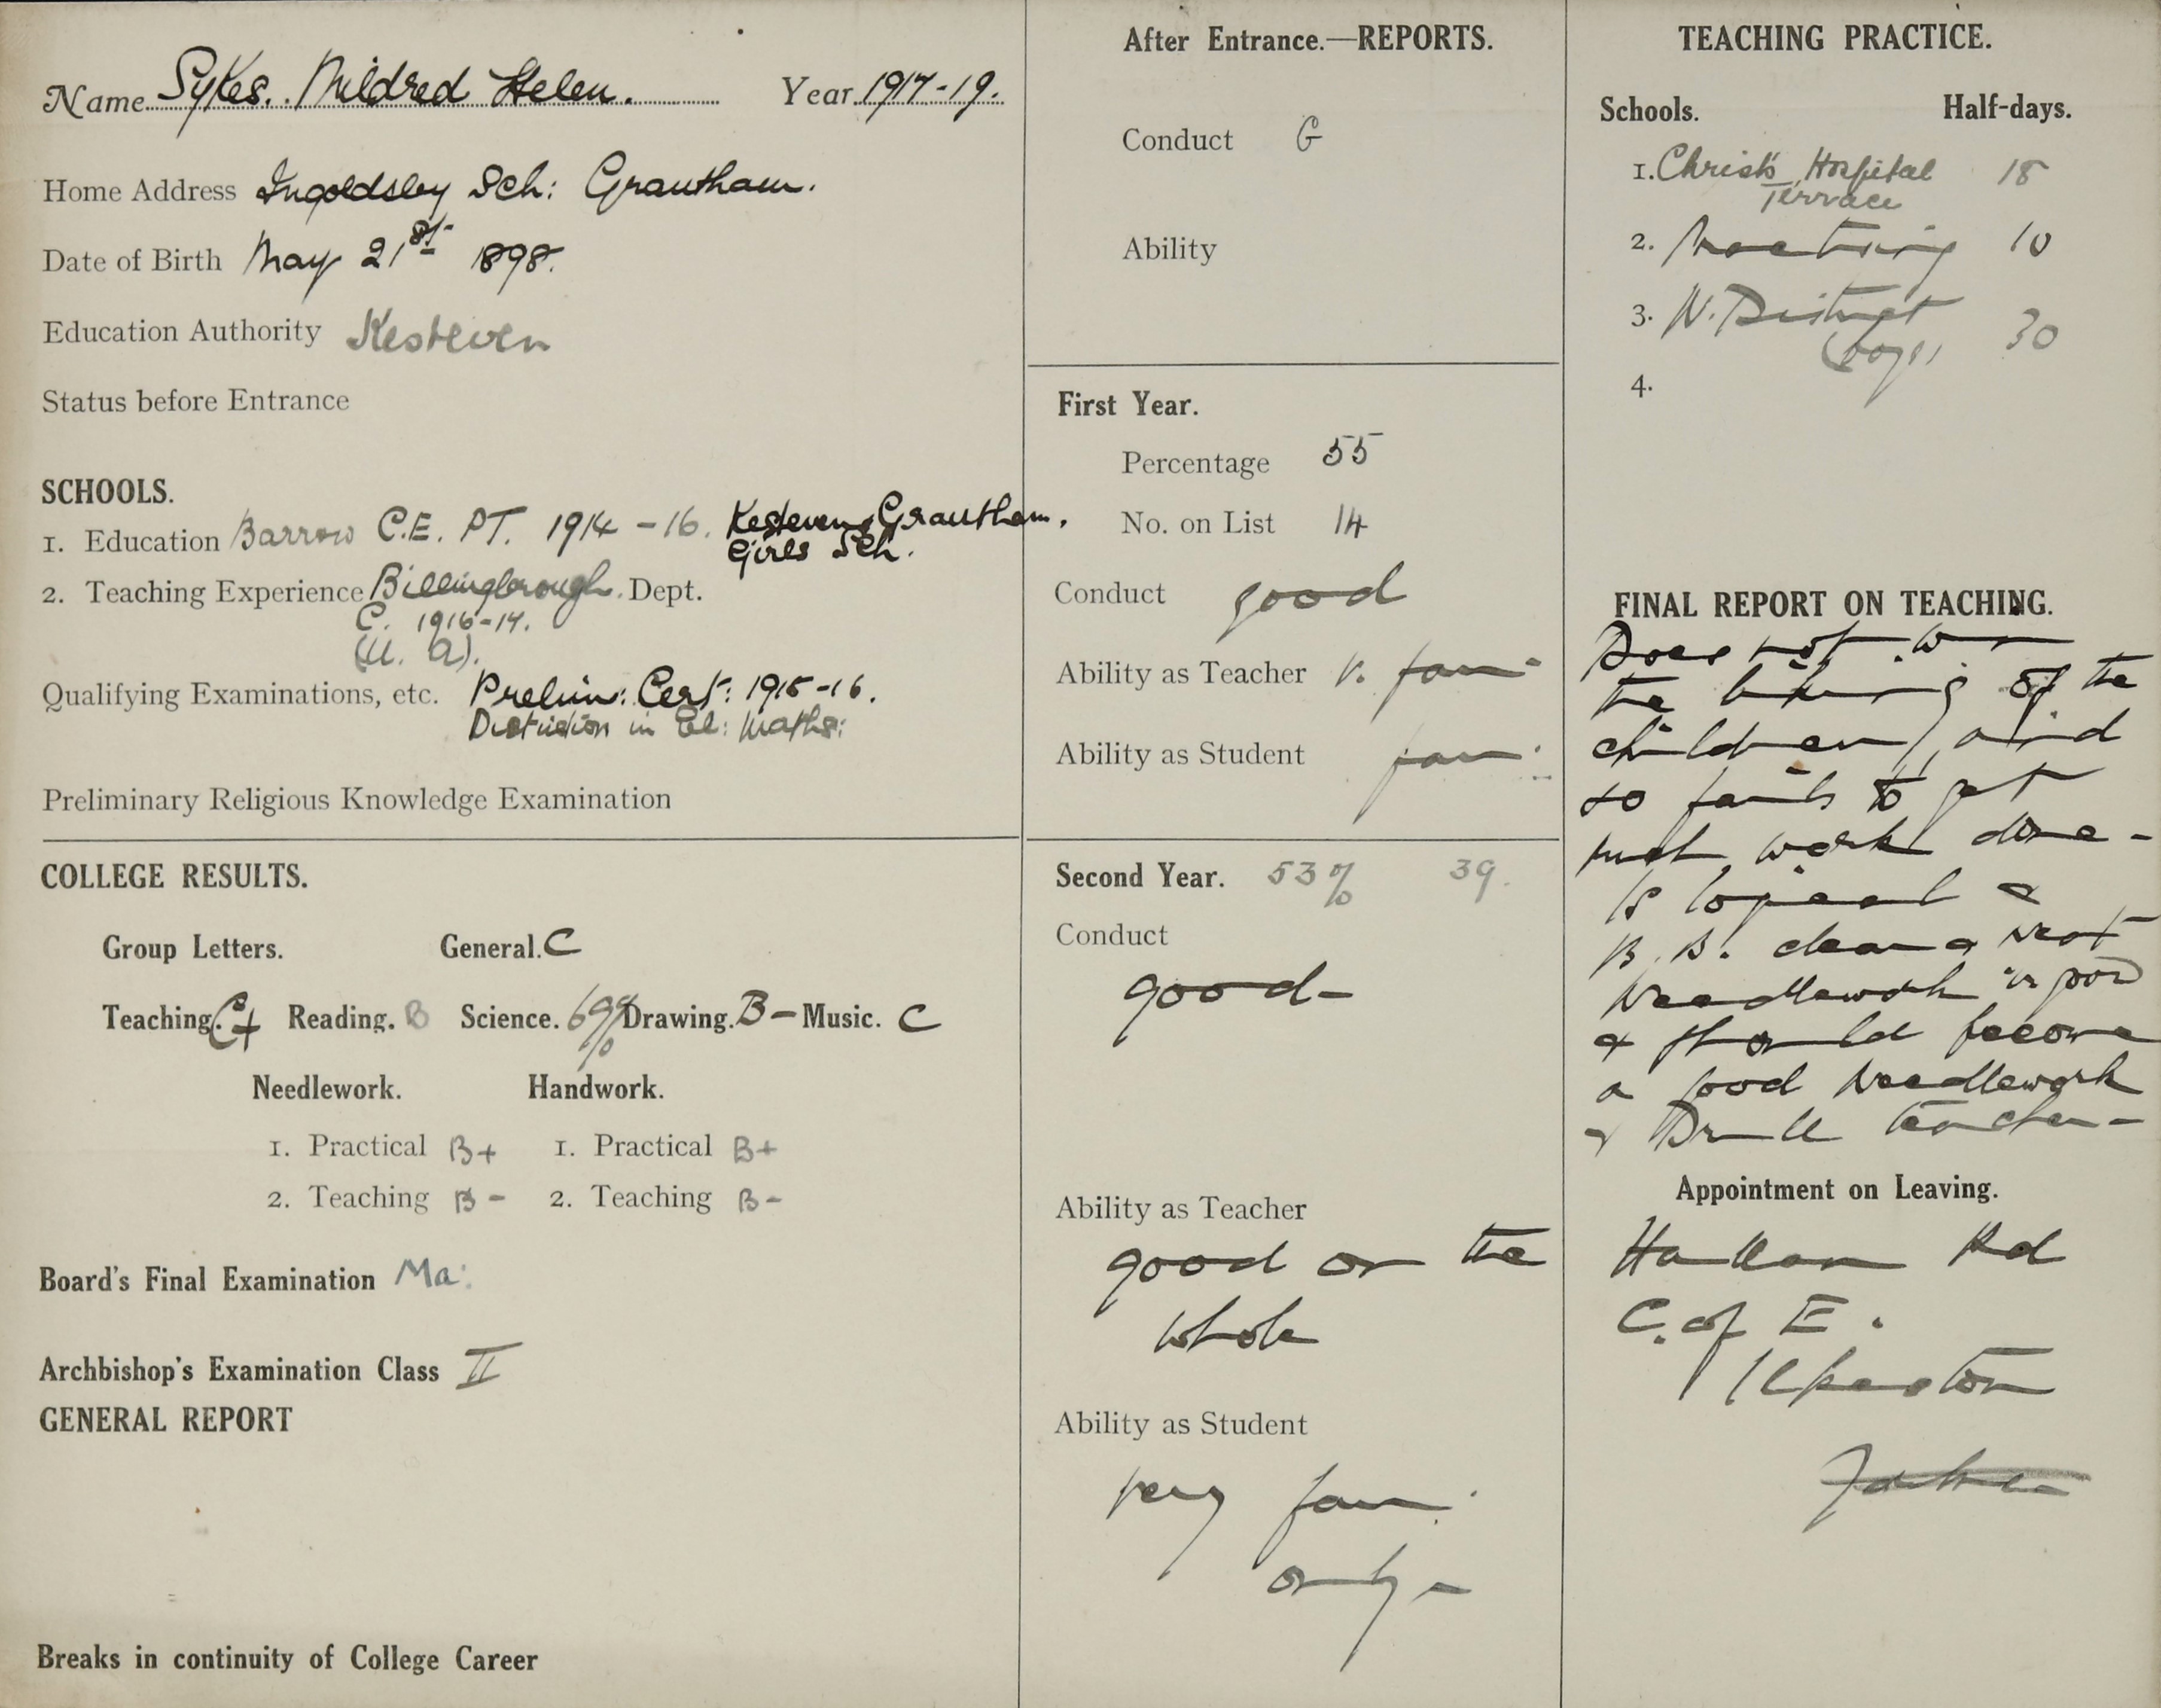 Name Sykes. Mildred Helen. Year 1917-19.
Home Address Ingoldsby Sch: Grantham.
Date of Birth May 21st 1898.
Education Authority Kesteven
Status before Entrance
SCHOOLS.
1. Education Barrow C.E. P.T. 1914-16. Kesteven & Grantham.
Girls Sch.
2. Teaching Experience Billingborough. Dept.
C. 1916-17.
(U. A).
Qualifying Examinations, etc. Prelim: Cert: 1915-16.
Distinction in El: Maths:
Preliminary Religious Knowledge Examination
COLLEGE RESULTS.
Group Letters. General. C
Teaching. C+ Reading. B Science. 69% Drawing. B- Music. C
Needlework. Handwork.
1. Practical B+ 1. Practical B+
2. Teaching B- 2. Teaching B-
Board's Final Examination Ma:
Archbishop's Examination Class II
GENERAL REPORT
Breaks in continuity of College Career
After Entrance.—REPORTS.
Conduct G
Ability
First Year.
Percentage 55
No. on List 14
Conduct good
Ability as Teacher v. fair
Ability as Student fair
Second Year. 53% 39.
Conduct
good-
Ability as Teacher
good on the
whole
Ability as Student
very fair
only-
TEACHING PRACTICE.
Schools. Half-days.
1. Christ's Hospital 18
Terrace
2. Practising 10
3. N. District
Boys 30
4.
FINAL REPORT ON TEACHING.
Does not win
the liking of the
children, and
so fails to get
much work done-
Is logical &
B.B. clear & neat
Needlework is good
& should become
a good Needlework
& Drill teacher-
Appointment on Leaving.
Hallam Rd
C. of E.
Ilkeston